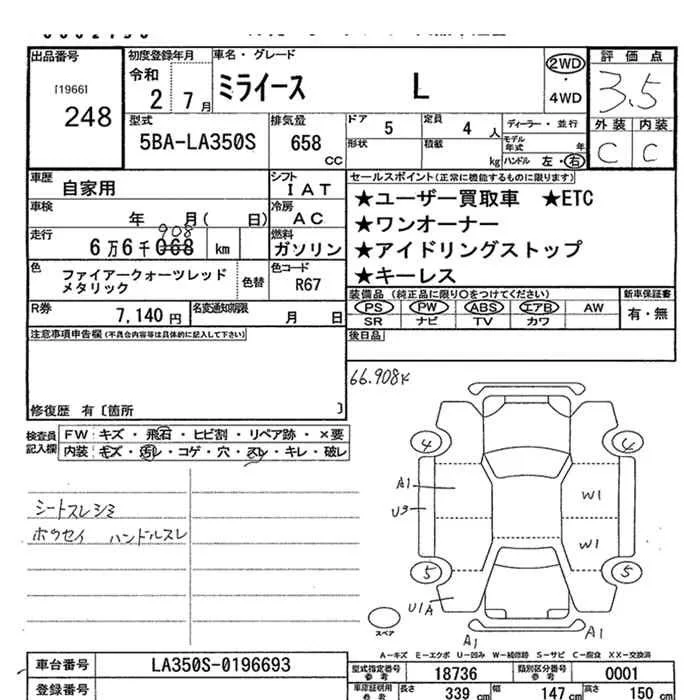 出品番号
[1966]
248
初度登録年月
令和
2年 7月
車名・グレード
ミライース L
2WD
・
4WD
評価点
3.5
外装 内装
C C
型式
5BA-LA350S
排気量
658
CC
ドア 5
定員 4 人
ディーラー・並行
形状
積載 kg
モデル年式 年
ハンドル 左・右
車歴
自家用
シフト
IAT
セールスポイント(正常に機能するものに限ります)
★ユーザー買取車 ★ETC
★ワンオーナー
★アイドリングストップ
★キーレス
車検
年 月( 日)
冷房
AC
走行
908
6万6千068 km
燃料
ガソリン
色
ファイアークォーツレッド
メタリック
色替
色コード
R67
装備品(純正品に限り○をつけてください)
PS PW ABS エアB AW
SR ナビ TV カワ
新車保証書
有・無
R券
7,140 円
名変通知期限
月 日
後日品
注意事項申告欄(不具合内容等は具体的に記入して下さい)
修復歴 有〔箇所 〕
66.908K
検査員
記入欄
FW キズ・飛石・ヒビ割・リペア跡・×要
内装 キズ・汚レ・コゲ・穴・スレ・キレ・破レ
シートスレシミ
ホウセイ ハンドルスレ
4
4
A1
U3
W1
W1
5
5
U1A
A1
A1
スペア
A-キズ E-エクボ U-凹み W-補修跡 S-サビ C-腐食 XX-交換済
車台番号
LA350S-0196693
登録番号
型式指定番号
参考
18736
類別区分番号
参考
0001
車庫証明用
参考
長さ 339 cm
幅 147 cm
高さ 150 cm